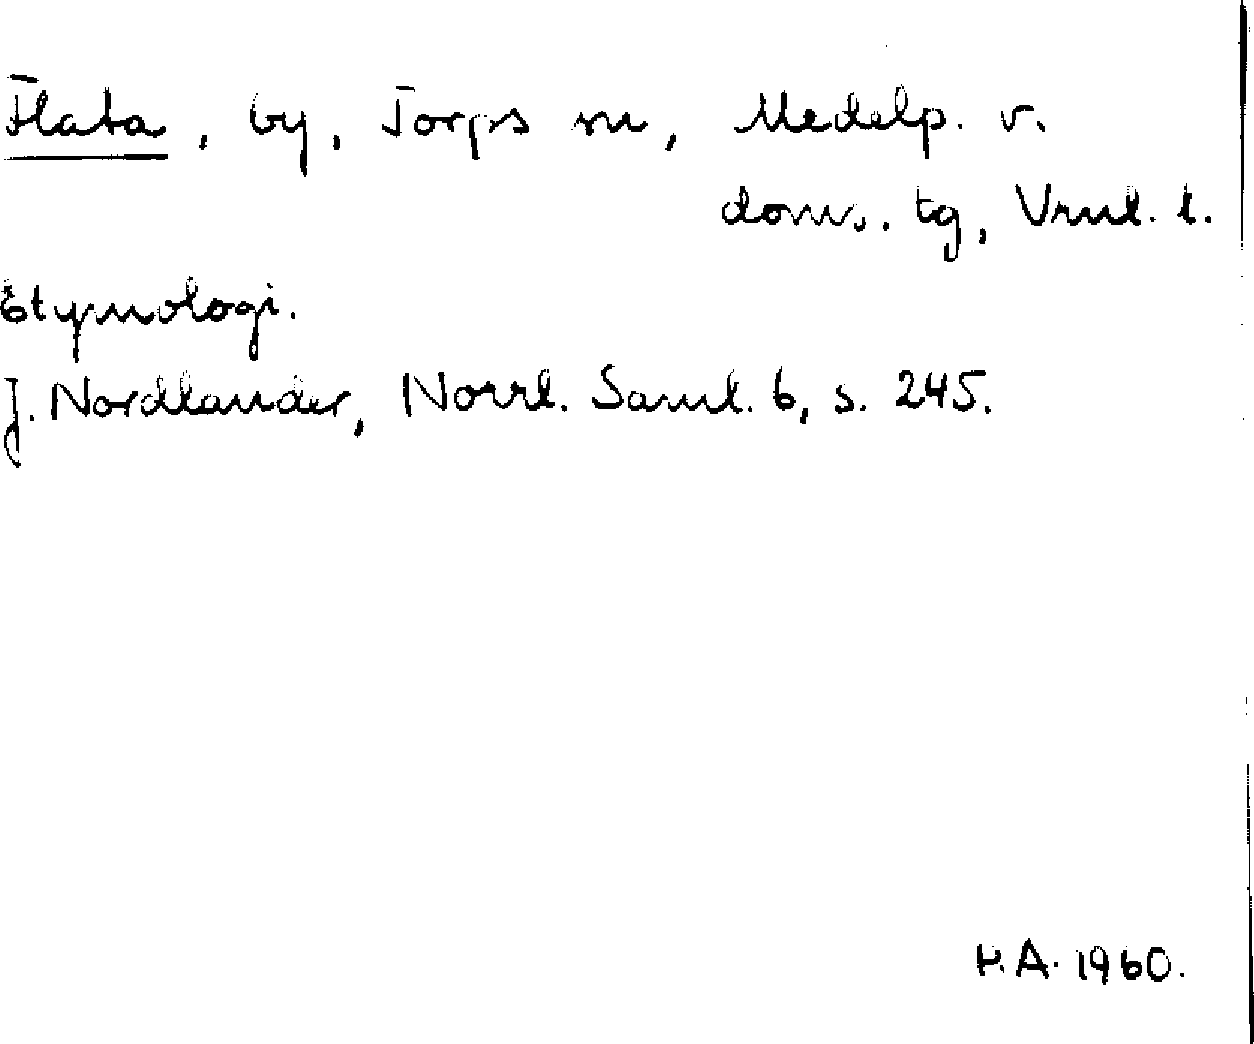 Flata, by, Torps sn, Medelp. v.
doms. tg, Vrnl. l.
Etymologi.
J. Nordlander, Norrl. Saml. 6, s. 245.
H.A. 1960.